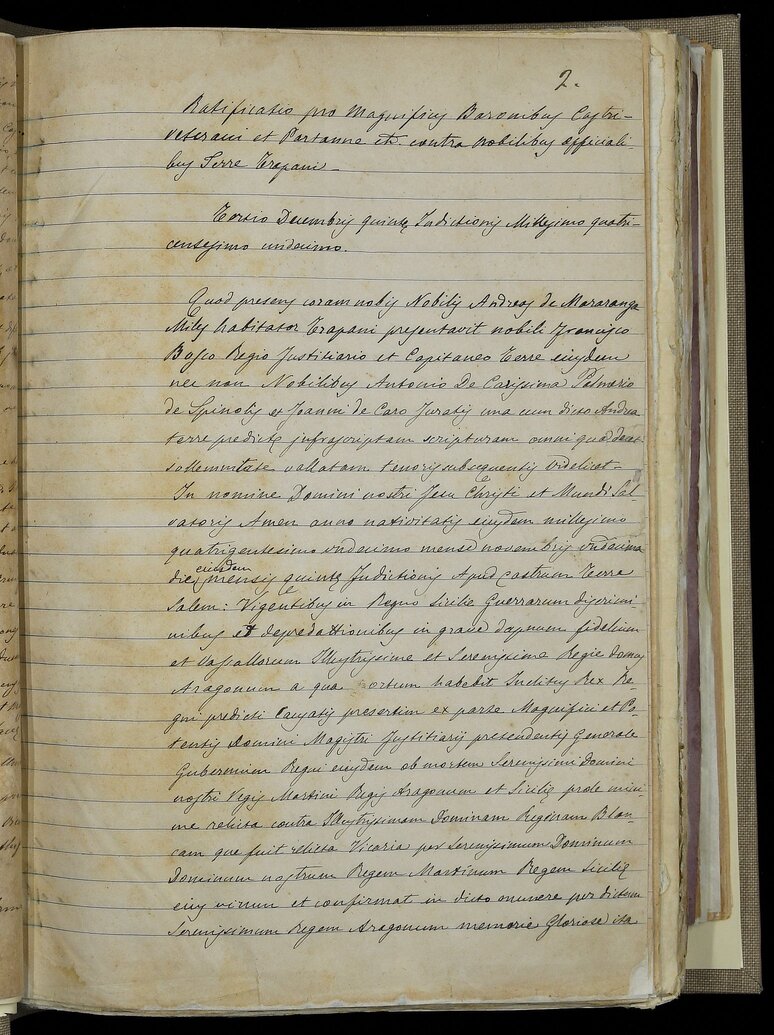 2.
Ratificatio pro Magnificis Baronibus Castri-
veterani et Partanne etc. contra nobilibus officiali-
bus Terre Trapani -
Tertio Decembris quinte Indictionis Millesimo quatri-
centesimo undecimo.
Quod presens coram nobis Nobilis Andreas de Mararanga
Miles habitator Trapani presentavit nobili Francisco
Bosco Regio Justitiario et Capitaneo Terre eiusdem
nec non Nobilibus Antonio De Carissima Palmerio
de Spinolis et Joanni de Caro Juratis una cum dicto Andrea
terre predicte infrascriptam scripturam omni qua decet
sollemnitate vallatam tenoris subsequentis videlicet -
In nomine Domini nostri Jesu Christi et Mundi Sal-
vatoris Amen anno nativitatis eiusdem millesimo
quatrigentesimo undecimo mense novembris undecimo
die eiusdem mensis quinte Indictionis Apud Castrum Terra
Salem: Vigentibus in Regno Sicilie Guerrarum discrimi
nibus et depredattionibus in grave dapnum fidelium
et Vassallorum Illustrissime et Serenissime Regie domus
Aragonum a qua ortum habebit Inclitus Rex Re-
gni predicti Causatis presertim ex parte Magnifici et Po-
tentis Domini Magistri Justitiarii pretendentis Generale
Gubernium Regni eiusdem ob mortem Serenissimi Domini
nostri Regis Martini Regis Aragonum et Sicilie prole mini-
me relicta contra Illustrissimam Dominam Reginam Blan-
cam que fuit relicta Vicaria per Serenissimum Dominum
Dominum nostrum Regem Martinum Regem Sicilie
eius virum et confirmat in dicto munere per dictum
Serenissimum Regem Aragonum memorie Gloriose ita